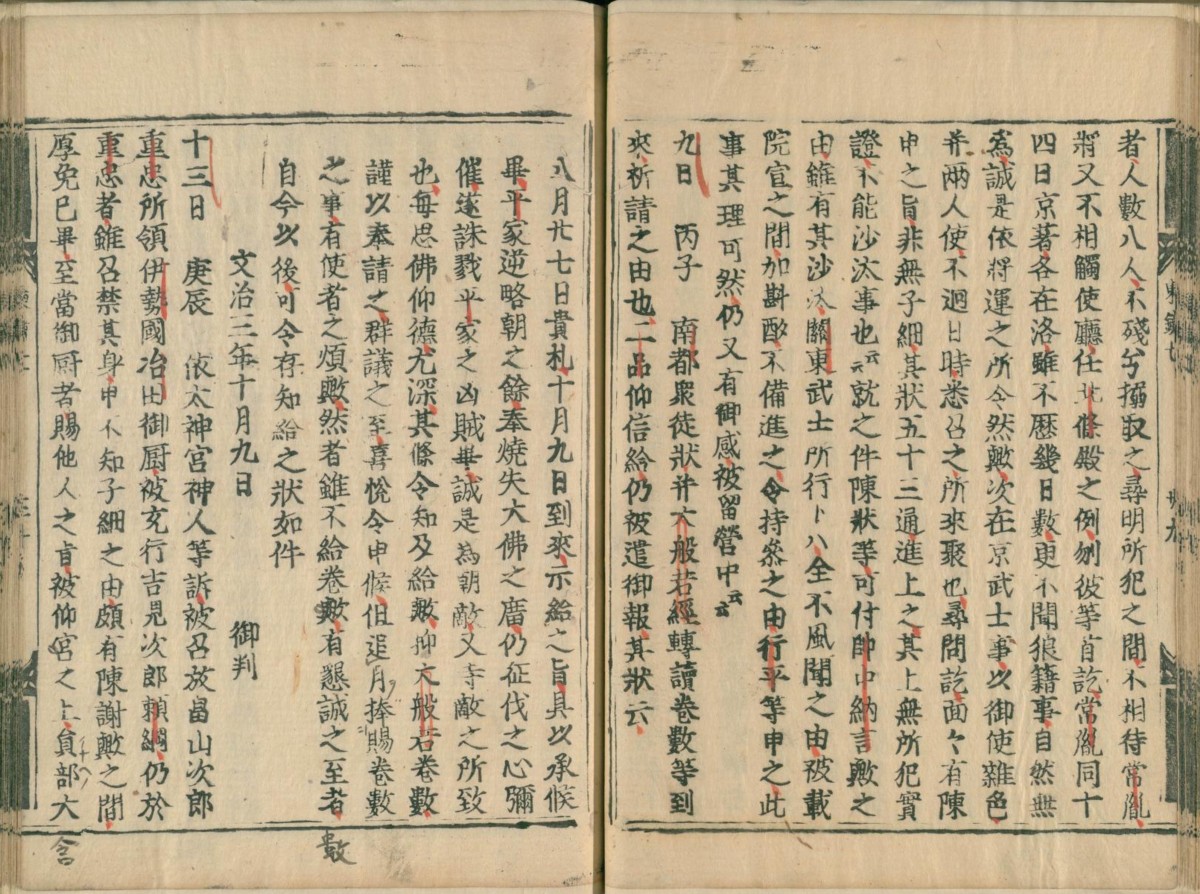 者人數八人不殘兮搦取之尋明所犯之間不相待常胤
將又不相觸使廳任北條殿之例刎彼等首訖常胤同十
四日京著各在洛雖不歷幾日數更不聞狼籍事自然無
為誠是依將運之所令然歟次在京武士事以御使雜色
并兩人使不迴日時悉召之所來聚也尋問訖面々有陳
申之旨非無子細其狀五十三通進上之其上無所犯實
證不能沙汰事也云云就之件陳狀等可付帥中納言歟之
由雖有其沙汰關東武士所行卜八全不風聞之由被載
院宣之間加斟酌不備進之令持參之由行平等申之此
事其理可然仍又有御感被留營中云云
九日 丙子 南都衆徒狀并大般若經轉讀卷數等到
來祈請之由也二品仰信給仍被遣御報其狀云
八月廿七日貴札十月九日到來示給之旨具以承候
畢平家逆略朝之餘奉燒失大佛之廣仍征伐之心彌
催遂誅戮平家之凶賊畢誠是為朝敵又寺敵之所致
也每思佛仰德尤深其條令知及給歟抑大般若卷數
謹以奉請之群議之至喜悅令申候但追月捧賜卷數
之事有使者之煩歟然者雖不給卷數有懇誠之至者
數
自今以後可令存知給之狀如件
文治三年十月九日 御判
十三日 庚辰 依太神宮神人等訴被召放畠山次郎
重忠所領伊勢國治田御厨被充行吉見次郎賴綱仍於
重忠者雖召禁其身申不知子細之由頗有陳謝歟之間
厚免已畢至當御厨者賜他人之旨被仰宮之上員部大
含